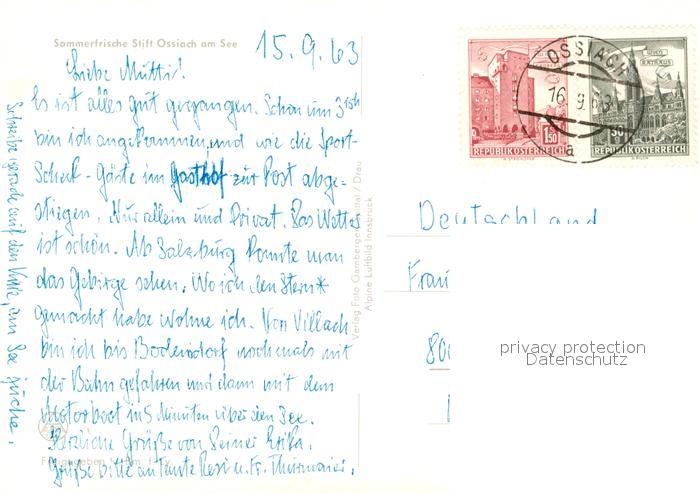 Sommerfrische Stift Ossiach am See
15.9.63
Liebe Mutti!
Es ist alles gut gegangen. Schon um 3 15h
bin ich angekommen, und wie die Sport-
Scheck-Gäste im Gasthof zur Post abge-
stiegen. Nur allein und Privat. Das Wetter
ist schön. Ab Salzburg konnte man
das Gebirge sehen. Wo ich den Stern*
gemacht habe wohne ich. Von Villach
bin ich bis Bodensdorf nochmals mit
der Bahn gefahren und dann mit dem
Motorboot in 5 Minuten über den See.
Herzliche Grüße von Deiner Erika.
Grüße bitte an Tante Resi u. Fr. Thurmaier.
Schreibe gerade auf den Knie, am See
Verlag Foto Gambergen
Alpine Luftbild Innsbruck
OSSIACH
16 9.63
a
1.50
REPUBLIK ÖSTERREICH
WIEN
RATHAUS
REPUBLIK ÖSTERREICH
Deutschland
privacy protection
Datenschutz